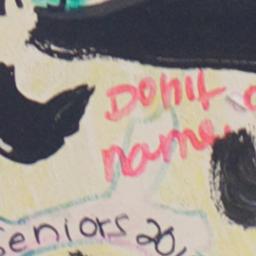 Don't
name
seniors 20,